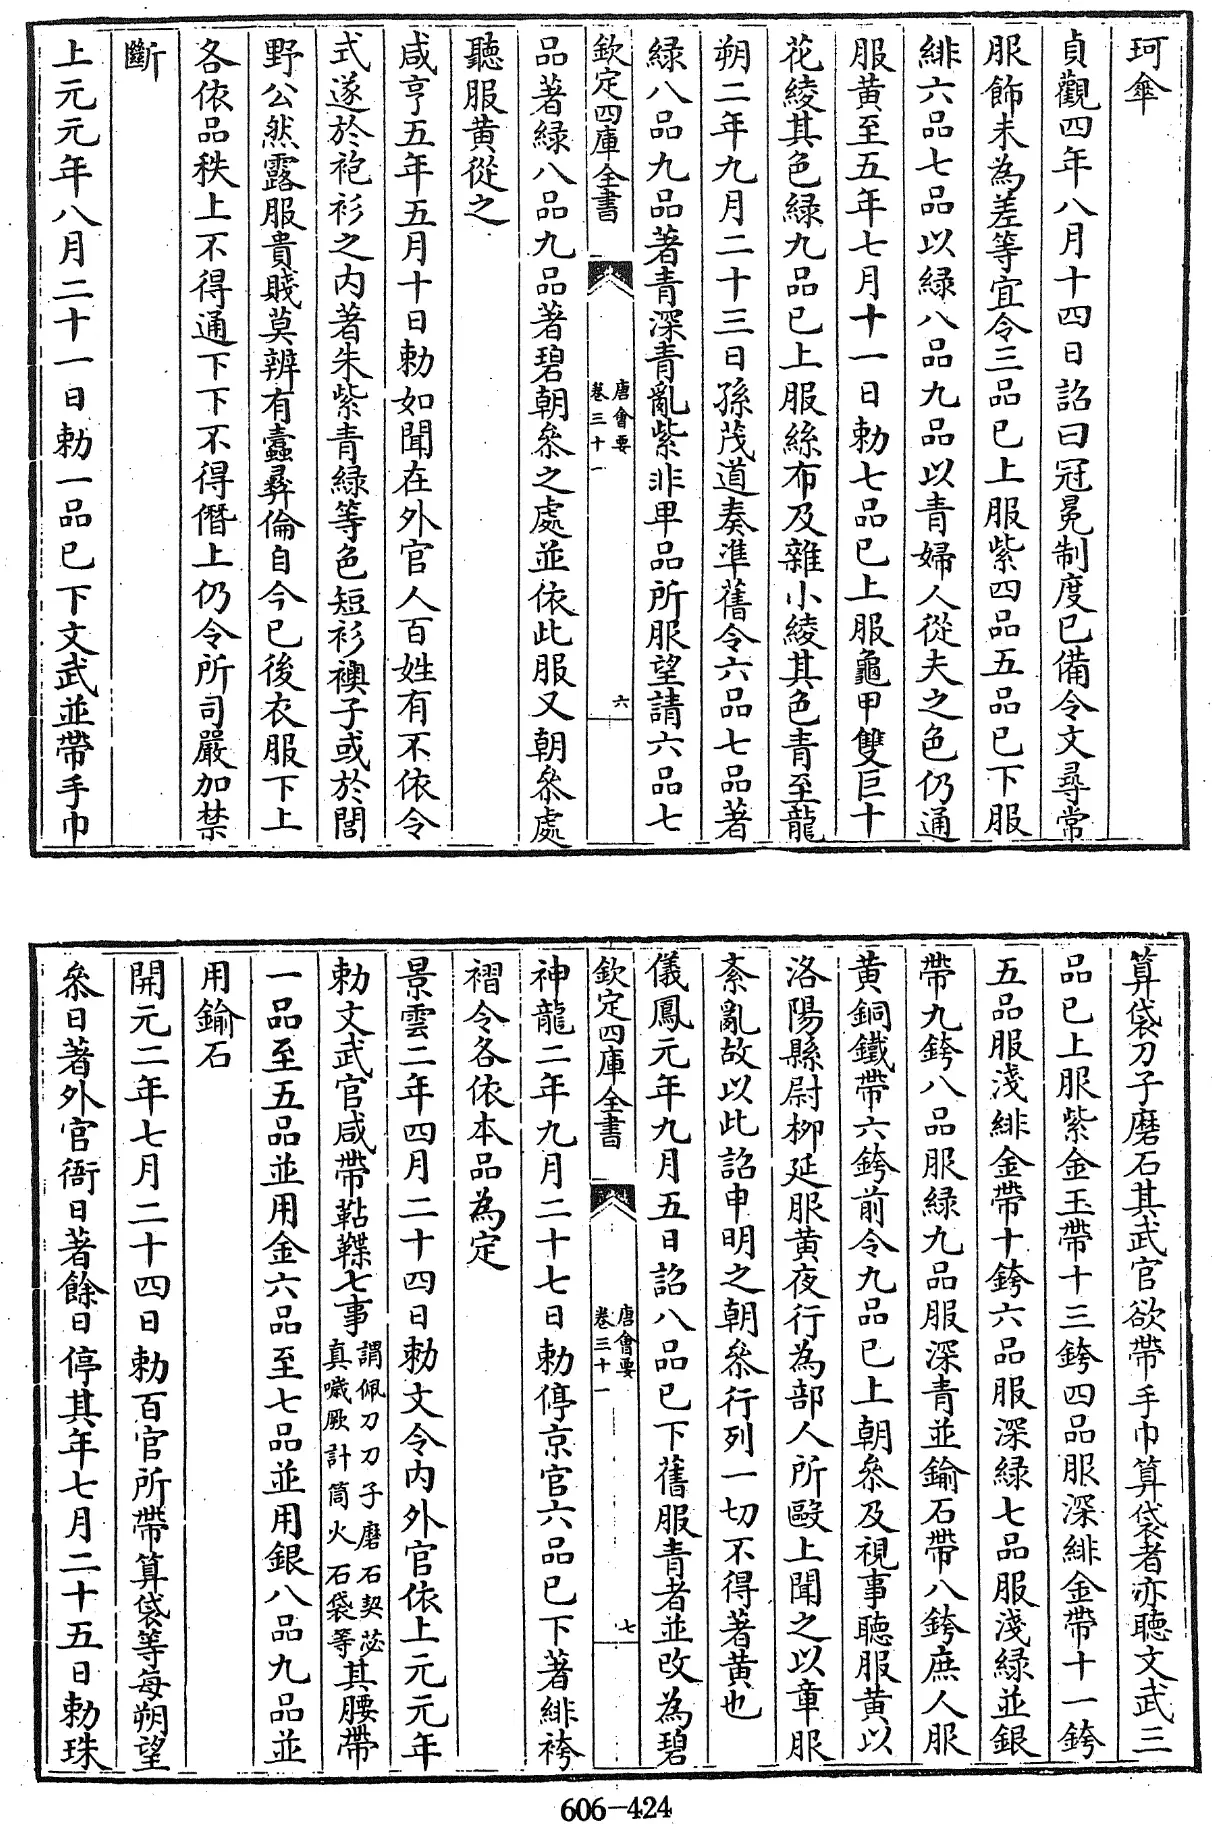 珂傘
貞觀四年八月十四日詔曰冠冕制度已備令文尋常
服飾未為差等宜令三品已上服紫四品五品已下服
緋六品七品以緑八品九品以青婦人從夫之色仍通
服黄至五年七月十一日勅七品已上服龜甲雙巨十
花綾其色緑九品已上服絲布及雜小綾其色青至龍
朔二年九月二十三日孫茂道奏準舊令六品七品著
緑八品九品著青深青亂紫非卑品所服望請六品七
欽定四庫全書
唐會要
卷三十一
六
品著緑八品九品著碧朝叅之處並依此服又朝叅處
聽服黄從之
咸亨五年五月十日勅如聞在外官人百姓有不依令
式遂於袍衫之内著朱紫青緑等色短衫襖子或於閭
野公然露服貴賤莫辨有蠹彛倫自今已後衣服下上
各依品秩上不得通下下不得僭上仍令所司嚴加禁
斷
上元元年八月二十一日勅一品已下文武並帶手巾
算袋刀子磨石其武官欲帶手巾算袋者亦聽文武三
品已上服紫金玉帶十三銙四品服深緋金帶十一銙
五品服淺緋金帶十銙六品服深緑七品服淺緑並銀
帶九銙八品服緑九品服深青並鍮石帶八銙庶人服
黄銅鐵帶六銙前令九品已上朝叅及視事聽服黄以
洛陽縣尉柳延服黄夜行為部人所毆上聞之以章服
紊亂故以此詔申明之朝叅行列一切不得著黄也
儀鳳元年九月五日詔八品已下舊服青者並改為碧
欽定四庫全書
唐會要
卷三十一
七
神龍二年九月二十七日勅停京官六品已下著緋袴
褶令各依本品為定
景雲二年四月二十四日勅文令内外官依上元元年
勅文武官咸帶鞊鞢七事謂佩刀刀子磨石契苾真噦厥計筒火石袋等其腰帶
一品至五品並用金六品至七品並用銀八品九品並
用鍮石
開元二年七月二十四日勅百官所帶算袋等每朔望
叅日著外官衙日著餘日停其年七月二十五日勅珠
606-424